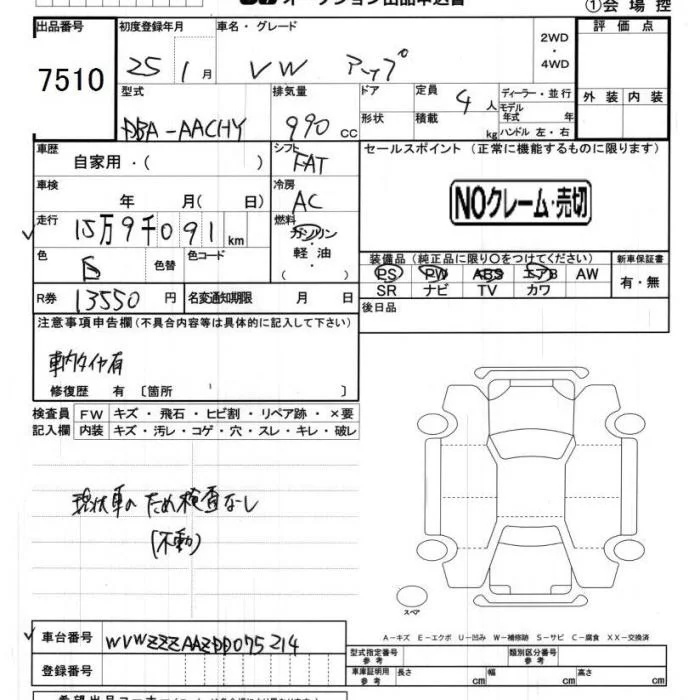 オークション出品申込書
①会場控
出品番号
7510
初度登録年月
25 1月
車名・グレード
VW アップ
2WD
・
4WD
評価点
外装 内装
型式
DBA-AACHY
排気量
990 cc
ドア
形状
定員
4人
積載
kg
ディーラー・並行
モデル年式 年
ハンドル 左・右
車歴
自家用・( )
シフト
FAT
セールスポイント (正常に機能するものに限ります)
NOクレーム・売切
車検
年 月( 日)
冷房
AC
走行
15万9千091km
燃料
ガソリン
・
軽油
( )
色
色替
色コード
装備品(純正品に限り○をつけてください)
新車保証書
PS PW ABS エアB AW
SR ナビ TV カワ
有・無
R券 13550円
名変通知期限 月 日
後日品
注意事項申告欄(不具合内容等は具体的に記入して下さい)
車内タイヤ有
修復歴 有 〔箇所 〕
検査員 FW キズ・飛石・ヒビ割・リペア跡・×要
記入欄 内装 キズ・汚レ・コゲ・穴・スレ・キレ・破レ
現状車のため検査なし
(不動)
スペア
A-キズ E-エクボ U-凹み W-補修跡 S-サビ C-腐食 XX-交換済
車台番号 WVWZZZAAZDD075214
登録番号
型式指定番号 参考
類別区分番号 参考
車庫証明用 参考 長さ cm 幅 cm 高さ cm